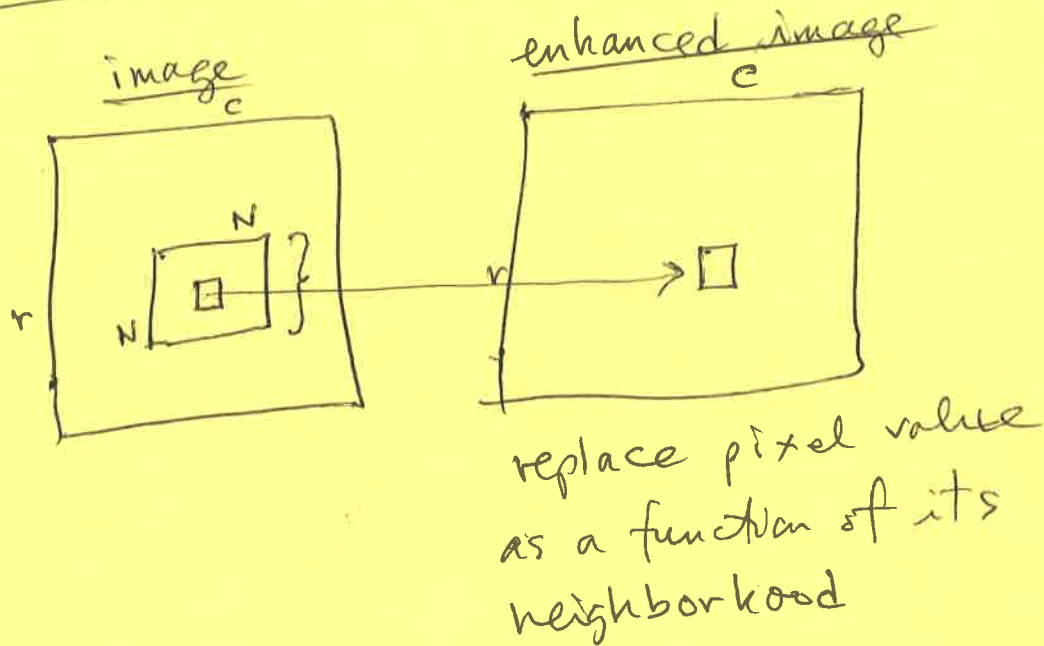 image
c
N
N
r
enhanced image
c
r
replace pixel value
as a function of its
neighborhood